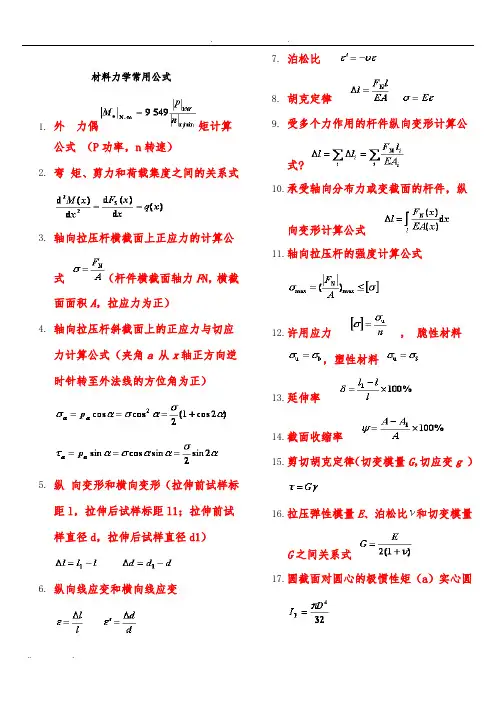 材料力学常用公式
1. 外 力偶 |M_e|_{N·m} = 9 549 P_{kW} / n_{r/min} 矩计算
公式 (P功率，n转速)
2. 弯 矩、剪力和荷载集度之间的关系式
d²M(x)/dx² = dF_S(x)/dx = q(x)
3. 轴向拉压杆横截面上正应力的计算公
式 σ = F_N/A (杆件横截面轴力FN，横截
面面积A，拉应力为正)
4. 轴向拉压杆斜截面上的正应力与切应
力计算公式（夹角a 从x轴正方向逆
时针转至外法线的方位角为正）
σ_α = p_α cosα = σcos²α = σ/2 (1+cos2α)
τ_α = p_α sinα = σcosαsinα = σ/2 sin2α
5. 纵 向变形和横向变形（拉伸前试样标
距l，拉伸后试样标距l1；拉伸前试
样直径d，拉伸后试样直径d1）
Δl = l₁ − l Δd = d₁ − d
6. 纵向线应变和横向线应变
ε = Δl/l ε' = Δd/d
7. 泊松比 ε' = −υε
8. 胡克定律 Δl = F_N l/EA σ = Eε
9. 受多个力作用的杆件纵向变形计算公
式? Δl = ∑_i Δl_i = ∑_i F_{Ni} l_i/EA_i
10. 承受轴向分布力或变截面的杆件，纵
向变形计算公式 Δl = ∫_l F_N(x)/EA(x) dx
11. 轴向拉压杆的强度计算公式
σ_max = (|F_N|/A)_max ≤ [σ]
12. 许用应力 [σ] = σ_u/n ， 脆性材料
σ_u = σ_b ，塑性材料 σ_u = σ_s
13. 延伸率 δ = (l₁ − l)/l ×100%
14. 截面收缩率 ψ = (A − A₁)/A ×100%
15. 剪切胡克定律（切变模量G，切应变g ）
τ = Gγ
16. 拉压弹性模量E、泊松比ν和切变模量
G之间关系式 G = E/2(1+ν)
17. 圆截面对圆心的极惯性矩（a）实心圆
I_P = πD⁴/32